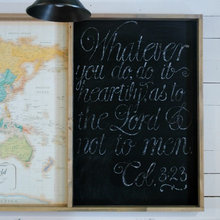 Whatever
you do, do it
heartily, as to
the Lord &
not to men.
Col. 3:23